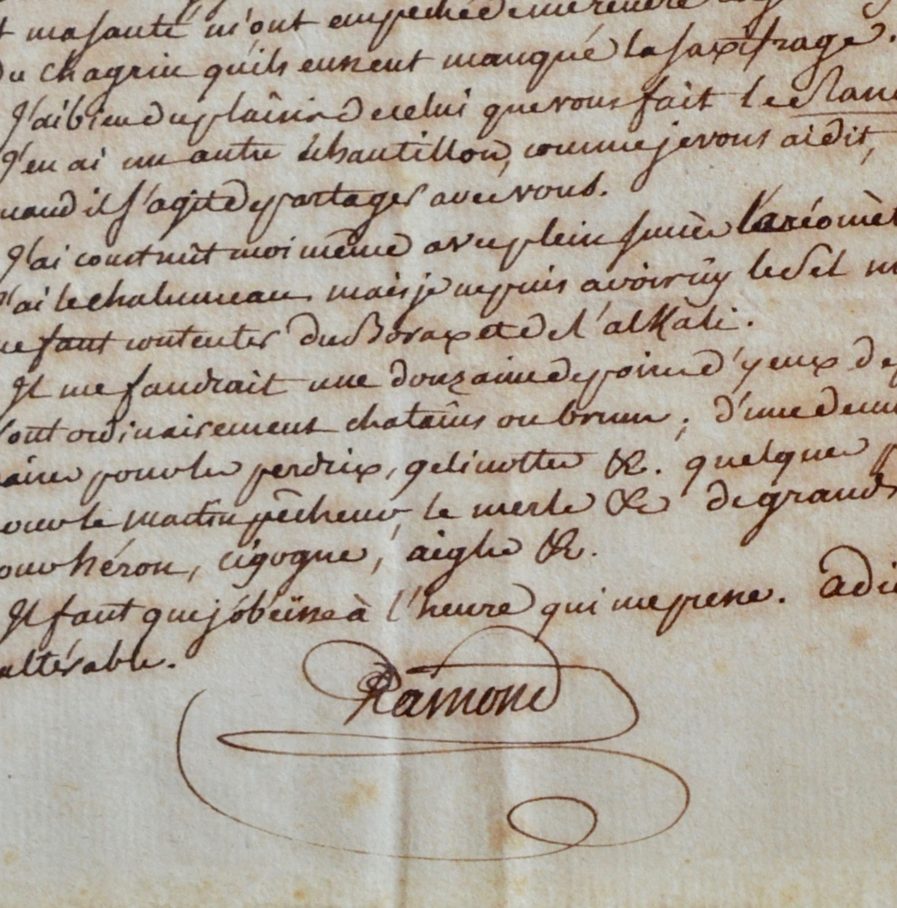 t ma santé m'ont empeché de me rendre
du chagrin qu'ils eussent manqué la saxifrage.
J'ai bien du plaisir de celui que vous fait le
J'en ai un autre échantillon, comme je vous ai dit,
quand il s'agit de partager avec vous.
J'ai construit moi même avec plein succès l'aréomèt
J'ai le chalumeau mais je ne puis avoir ny le Sel m
me faut contenter du Borax et de l'alkali.
Il me faudrait une douzaine de paires d'yeux de
sont ordinairement chatains ou bruns; d'une demi
aine pour les perdrix, gelinottes &c. quelques p
pour le martin pêcheur, le merle &c de grands
pour héron, cigogne, aigles &c.
Il faut que j'obéisse à l'heure qui me presse. adi
altérable.
Ramond